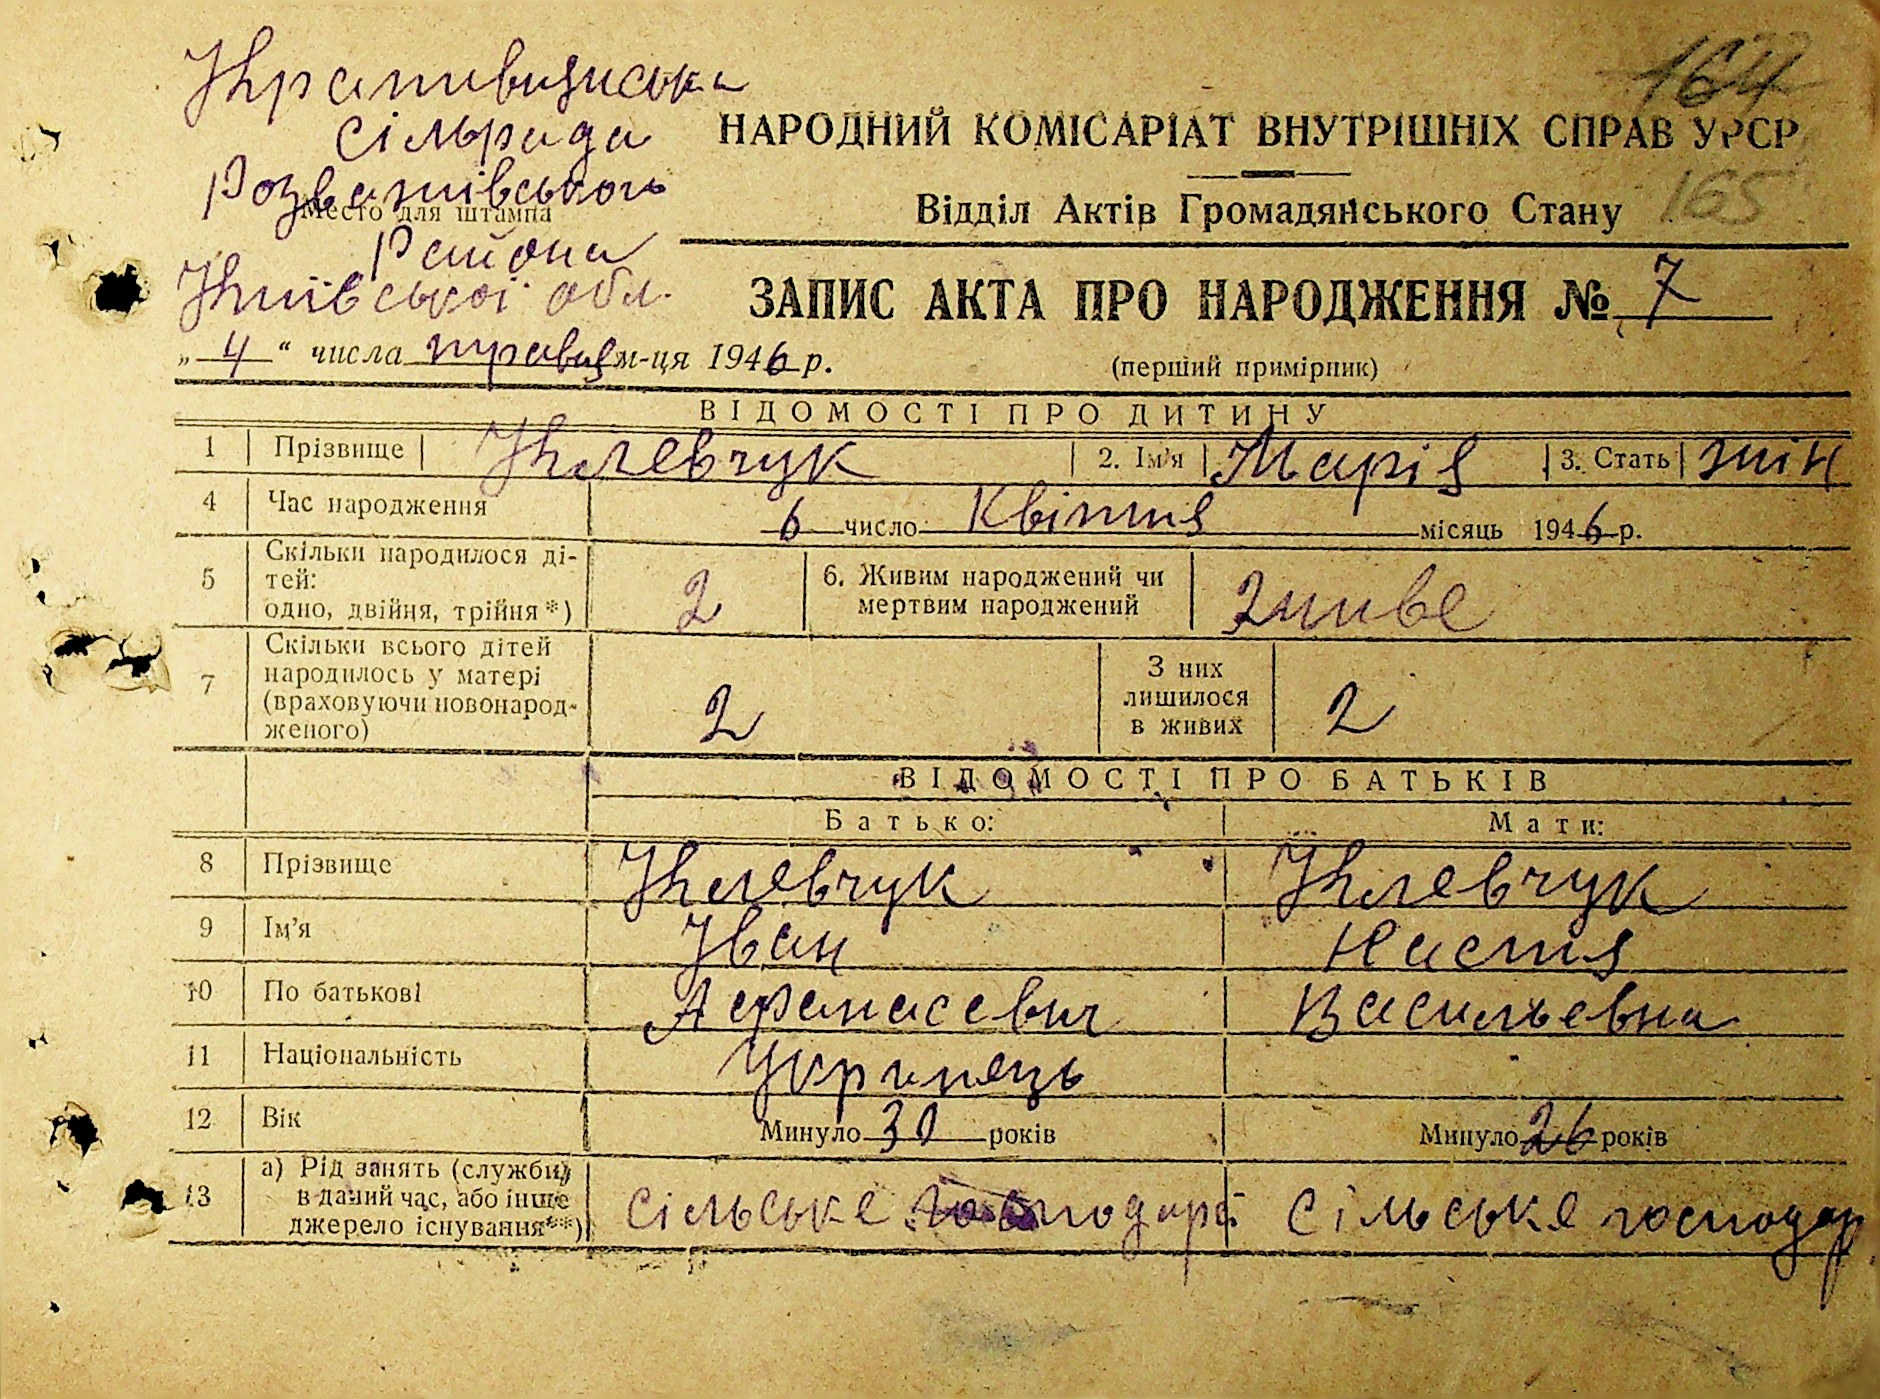 164
Крапивнянська
сільрада
НАРОДНИЙ КОМІСАРІАТ ВНУТРІШНІХ СПРАВ УРСР
Розважівського
165
Место для штампа
Відділ Актів Громадянського Стану
Района
Київської обл.
ЗАПИС АКТА ПРО НАРОДЖЕННЯ № 7
„ 4 “ числа травня м-ця 1946 р.
(перший примірник)
ВІДОМОСТІ ПРО ДИТИНУ
1 Прізвище Клевчук 2. Ім’я Марія 3. Стать жін
4 Час народження 6 число Квітня місяць 1946 р.
5 Скільки народилося ді-
тей:
одно, двійня, трійня *) 2 6. Живим народжений чи
мертвим народжений живе
7 Скільки всього дітей
народилось у матері
(враховуючи новонарод-
женого) 2 З них
лишилося
в живих 2
ВІДОМОСТІ ПРО БАТЬКІВ
Батько: Мати:
8 Прізвище Клевчук Клевчук
9 Ім’я Іван Настя
10 По батькові Афанасевич Васильевна
11 Національність Украінець
12 Вік Минуло 30 років Минуло 26 років
13 а) Рід занять (служби)
в даний час, або інше
джерело існування**) сільське господар сільське господар